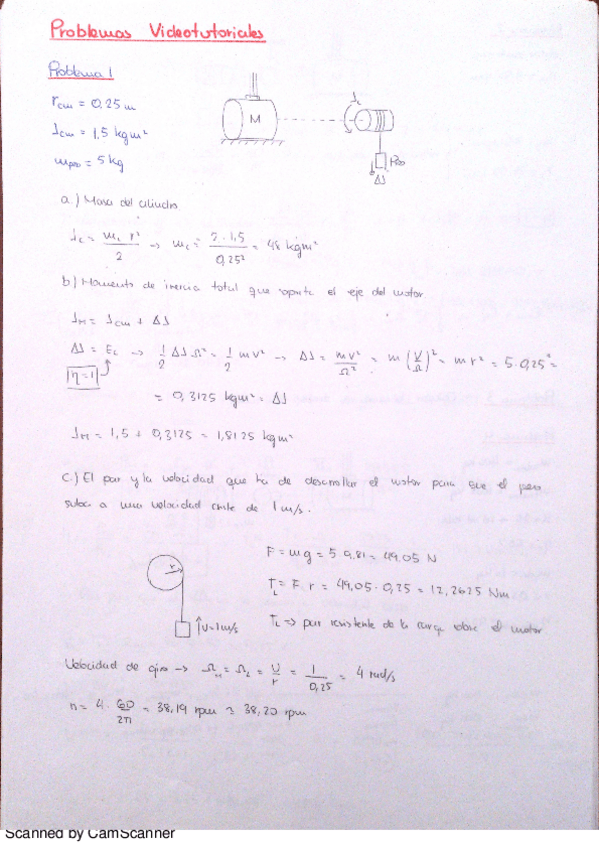 Problemas Videotutoriales
Problema 1
r_cm = 0,25 m
J_cm = 1,5 kgm²
m_peso = 5 kg
M
J_L
Peso
ΔJ
a.) Masa del cilindro
J_c = m_c r² / 2 → m_c = 2 · 1,5 / 0,25² = 48 kgm²
b) Momento de inercia total que soporta el eje del motor
J_M = J_cm + ΔJ
ΔJ = E_c → 1/2 ΔJ Ω² = 1/2 m v² → ΔJ = mv² / Ω² = m (V/Ω)² = m r² = 5 · 0,25² =
η = 1
= 0,3125 kgm² = ΔJ
J_M = 1,5 + 0,3125 = 1,8125 kgm²
c.) El par y la velocidad que ha de desarrollar el motor para que el peso
suba a una velocidad cnste de 1 m/s.
F = mg = 5 · 9,81 = 49,05 N
T_L = F · r = 49,05 · 0,25 = 12,2625 Nm
r
↑v=1 m/s
T_L ⇒ par resistente de la carga sobre el motor
Velocidad de giro → Ω_M = Ω_L = V/r = 1/0,25 = 4 rad/s
n = 4 · 60/2π = 38,19 rpm ≃ 38,20 rpm
Scanned by CamScanner